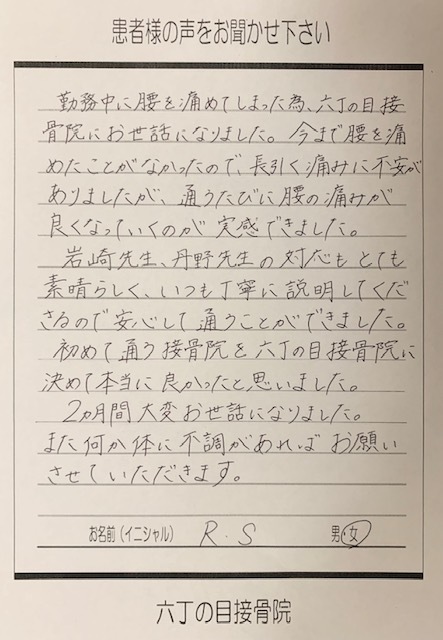 患者様の声をお聞かせ下さい
勤務中に腰を痛めてしまった為、六丁の目接
骨院にお世話になりました。今まで腰を痛
めたことがなかったので、長引く痛みに不安が
ありましたが、通うたびに腰の痛みが
良くなっていくのが実感できました。
岩崎先生、丹野先生の対応もとても
素晴らしく、いつも丁寧に説明してくだ
さるので安心して通うことができました。
初めて通う接骨院を六丁の目接骨院に
決めて本当に良かったと思いました。
2ヵ月間大変お世話になりました。
また何か体に不調があればお願い
させていただきます。
お名前(イニシャル) R.S 男・女
六丁の目接骨院